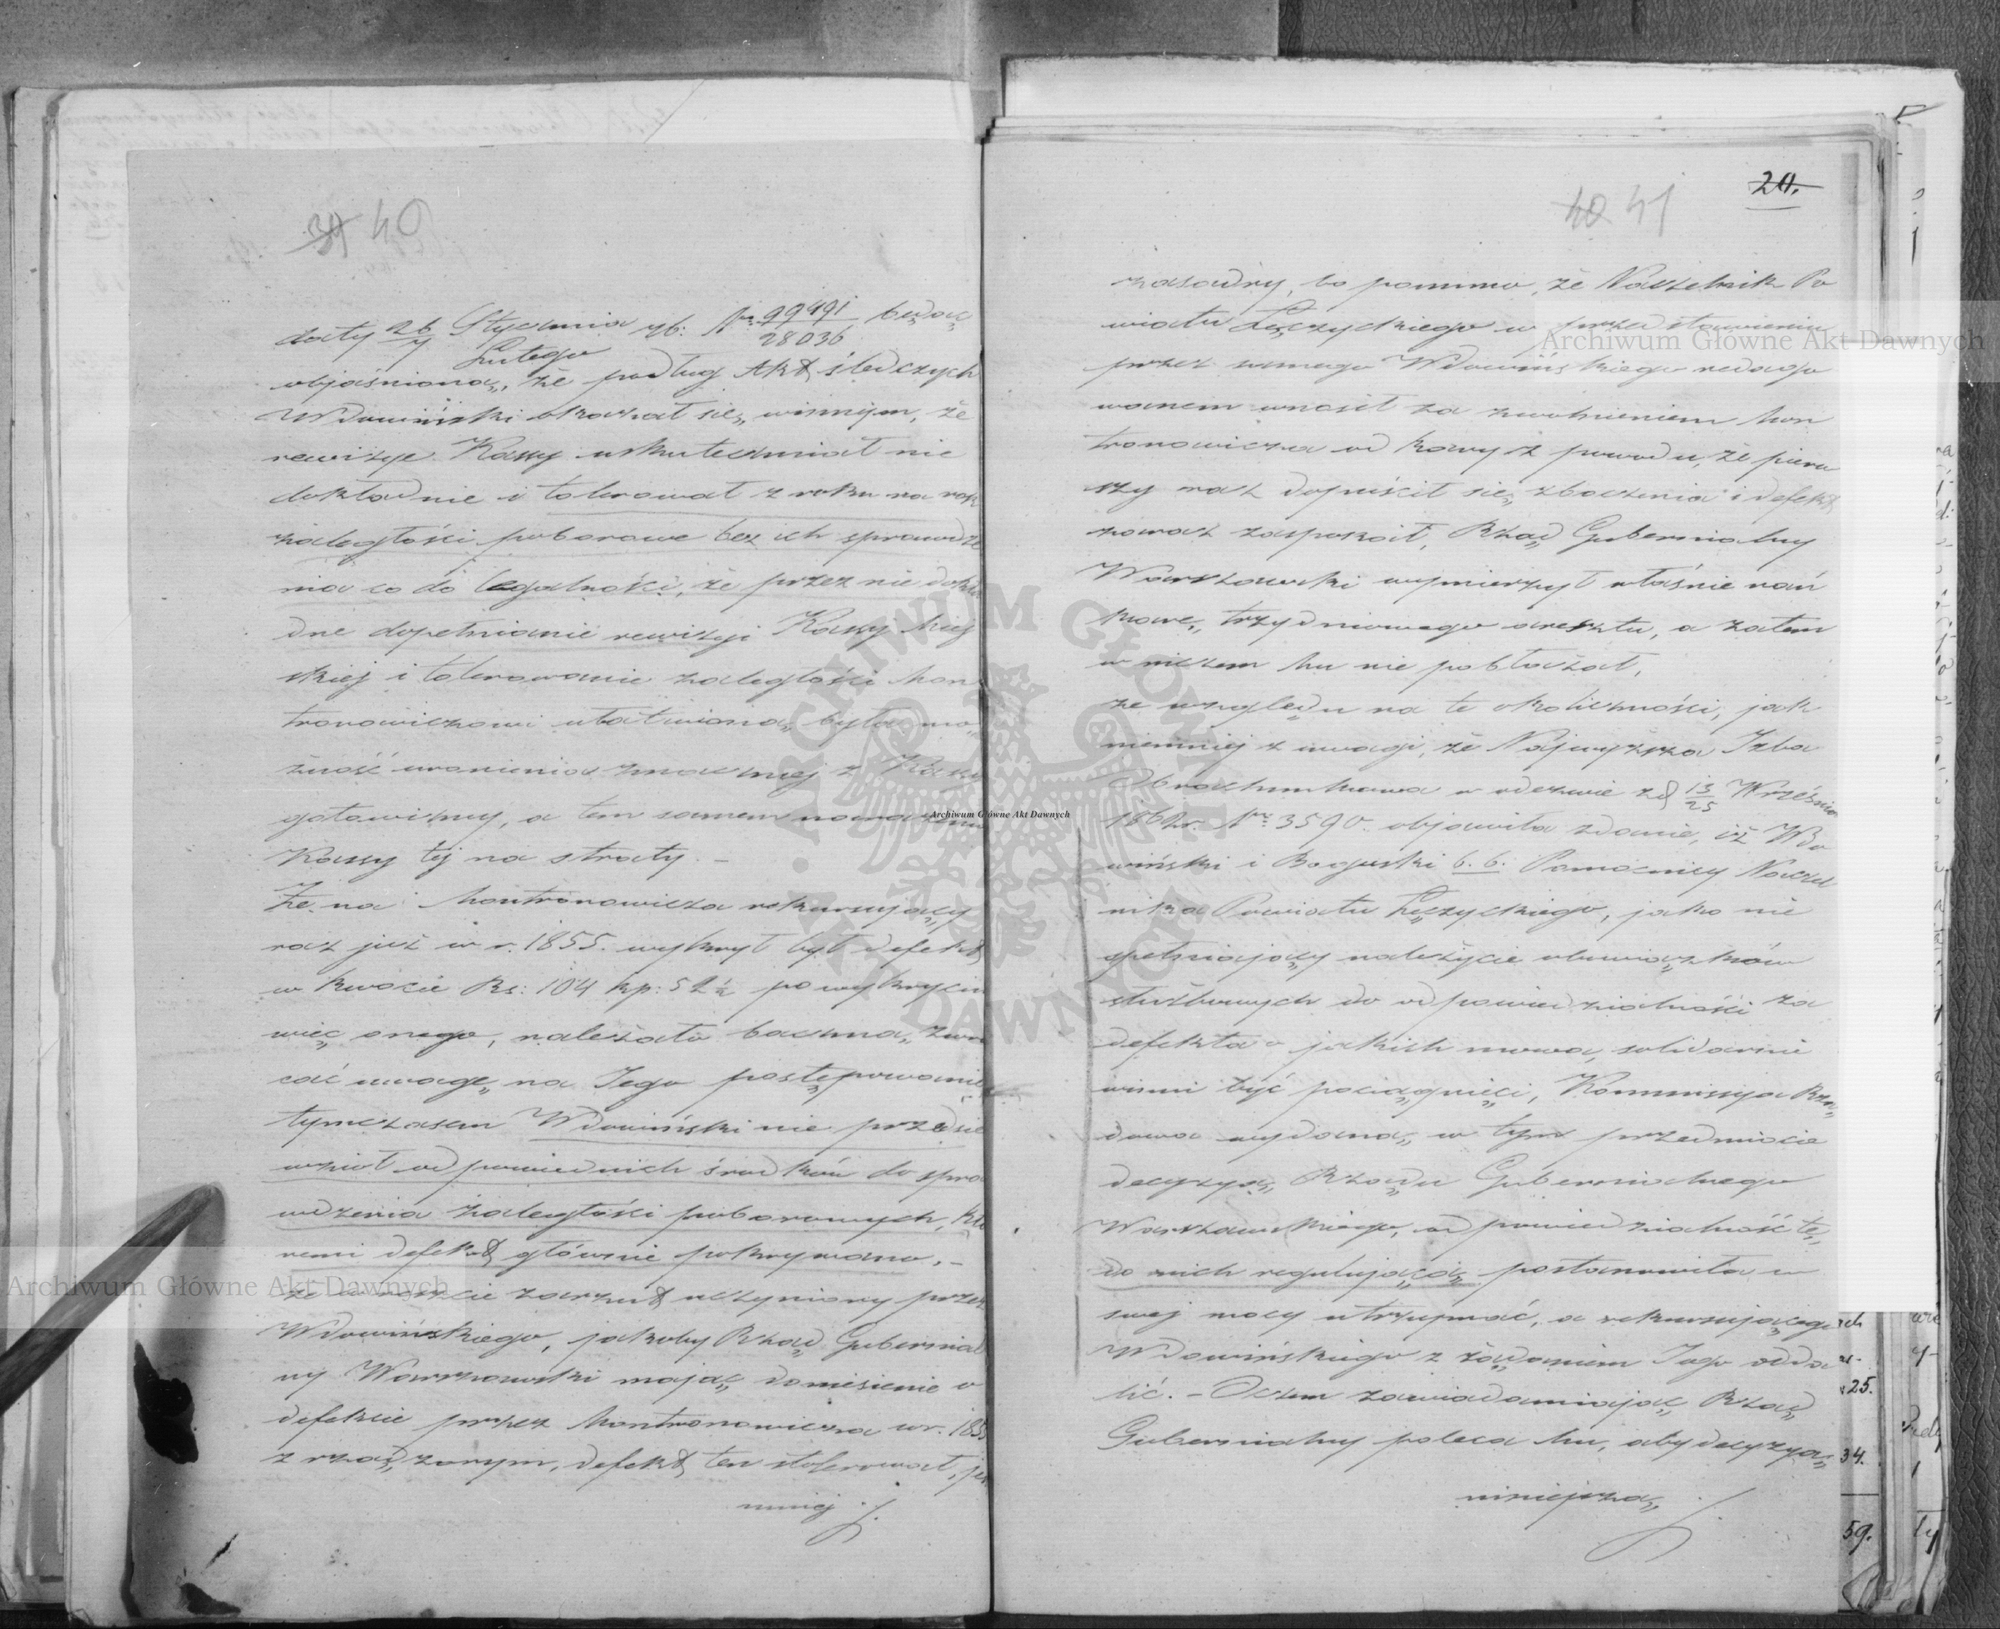 39 40
daty 26/7 Stycznia/Lutego rb: Nr 99491/28036 będąc
objaśnioną, że podług Akt śledczych
Wdowiński okazał się winnym, że
rewizye Kassy uskuteczniał nie
dokładnie i tolerował z roku na rok
zaległości poborowe bez ich sprawdze
nia co do legalności, że przez nie dokła
dne dopełnianie rewizyi Kassy Miej
skiej i tolerowanie zaległości Mon
tronowiczowi ułatwioną była mo
żność uronienia znacznej z Kassy
gotowizny, a tem samem narażenia
Kassy tej na straty. –
Że na Montronowicza rekursujący
raz już w r. 1855. wykrył był defekt
w kwocie Rs: 104 kp: 52½ po wykryciu
więc onego, należało baczną zwra
cać uwagę na Jego postępowanie
tymczasem Wdowiński nie przedsię
wziął odpowiednich środków do spra
wdzenia zaległości poborowych, któ
remi defekt głównie pokrywano. –
że w reszcie zarzut uczyniony przez
Wdowińskiego, jakoby Rząd Gubernial
ny Warszawski mając doniesienie o
defekcie przez Montronowicza w r. 1855
zrządzonym, defekt ten tolerował, jest
mniej
20.
40 41
zasadny, bo pomimo, że Naczelnik Po
wiatu Łęczyckiego w przedstawieniu
przez samego Wdowińskiego redago
wanem wnosił za zwolnieniem Mon
tronowicza od kary z powodu, że pierw
szy raz dopuścił się zboczenia i defekt
zaraz zaspokoił, Rząd Gubernialny
Warszawski wymierzył właśnie nań
karę trzydniowego aresztu, a zatem
w niczem Mu nie pobłażał,
ze względu na te okoliczności, jak
niemniej z uwagi, że Najwyższa Izba
Obrachunkowa w odezwie z d 13/25 Września
1862 r. Nr: 3590. objawiła zdanie, iż Wdo
wiński i Boguski b. b. Pomocnicy Naczel
nika Powiatu Łęczyckiego, jako nie
spełniający należycie obowiązków
służbowych do odpowiedzialności za
defekta o jakich mowa, solidarnie
winni być pociągnięci, Kommissya Rzą
dowa wydaną w tym przedmiocie
decyzyą Rządu Gubernialnego
Warszawskiego, odpowiedzialność tę
do nich regulującą postanowiła w
swej mocy utrzymać, a rekursującego
Wdowińskiego z żądaniem Jego odda
lić. – O czem zawiadamiając Rząd
Gubernialny poleca Mu, aby decyzyą
niniejszą
25.
34.
59.
Archiwum Główne Akt Dawnych
Archiwum Główne Akt Dawnych
Archiwum Główne Akt Dawnych
ARCHIWUM GŁÓWNE AKT DAWNYCH